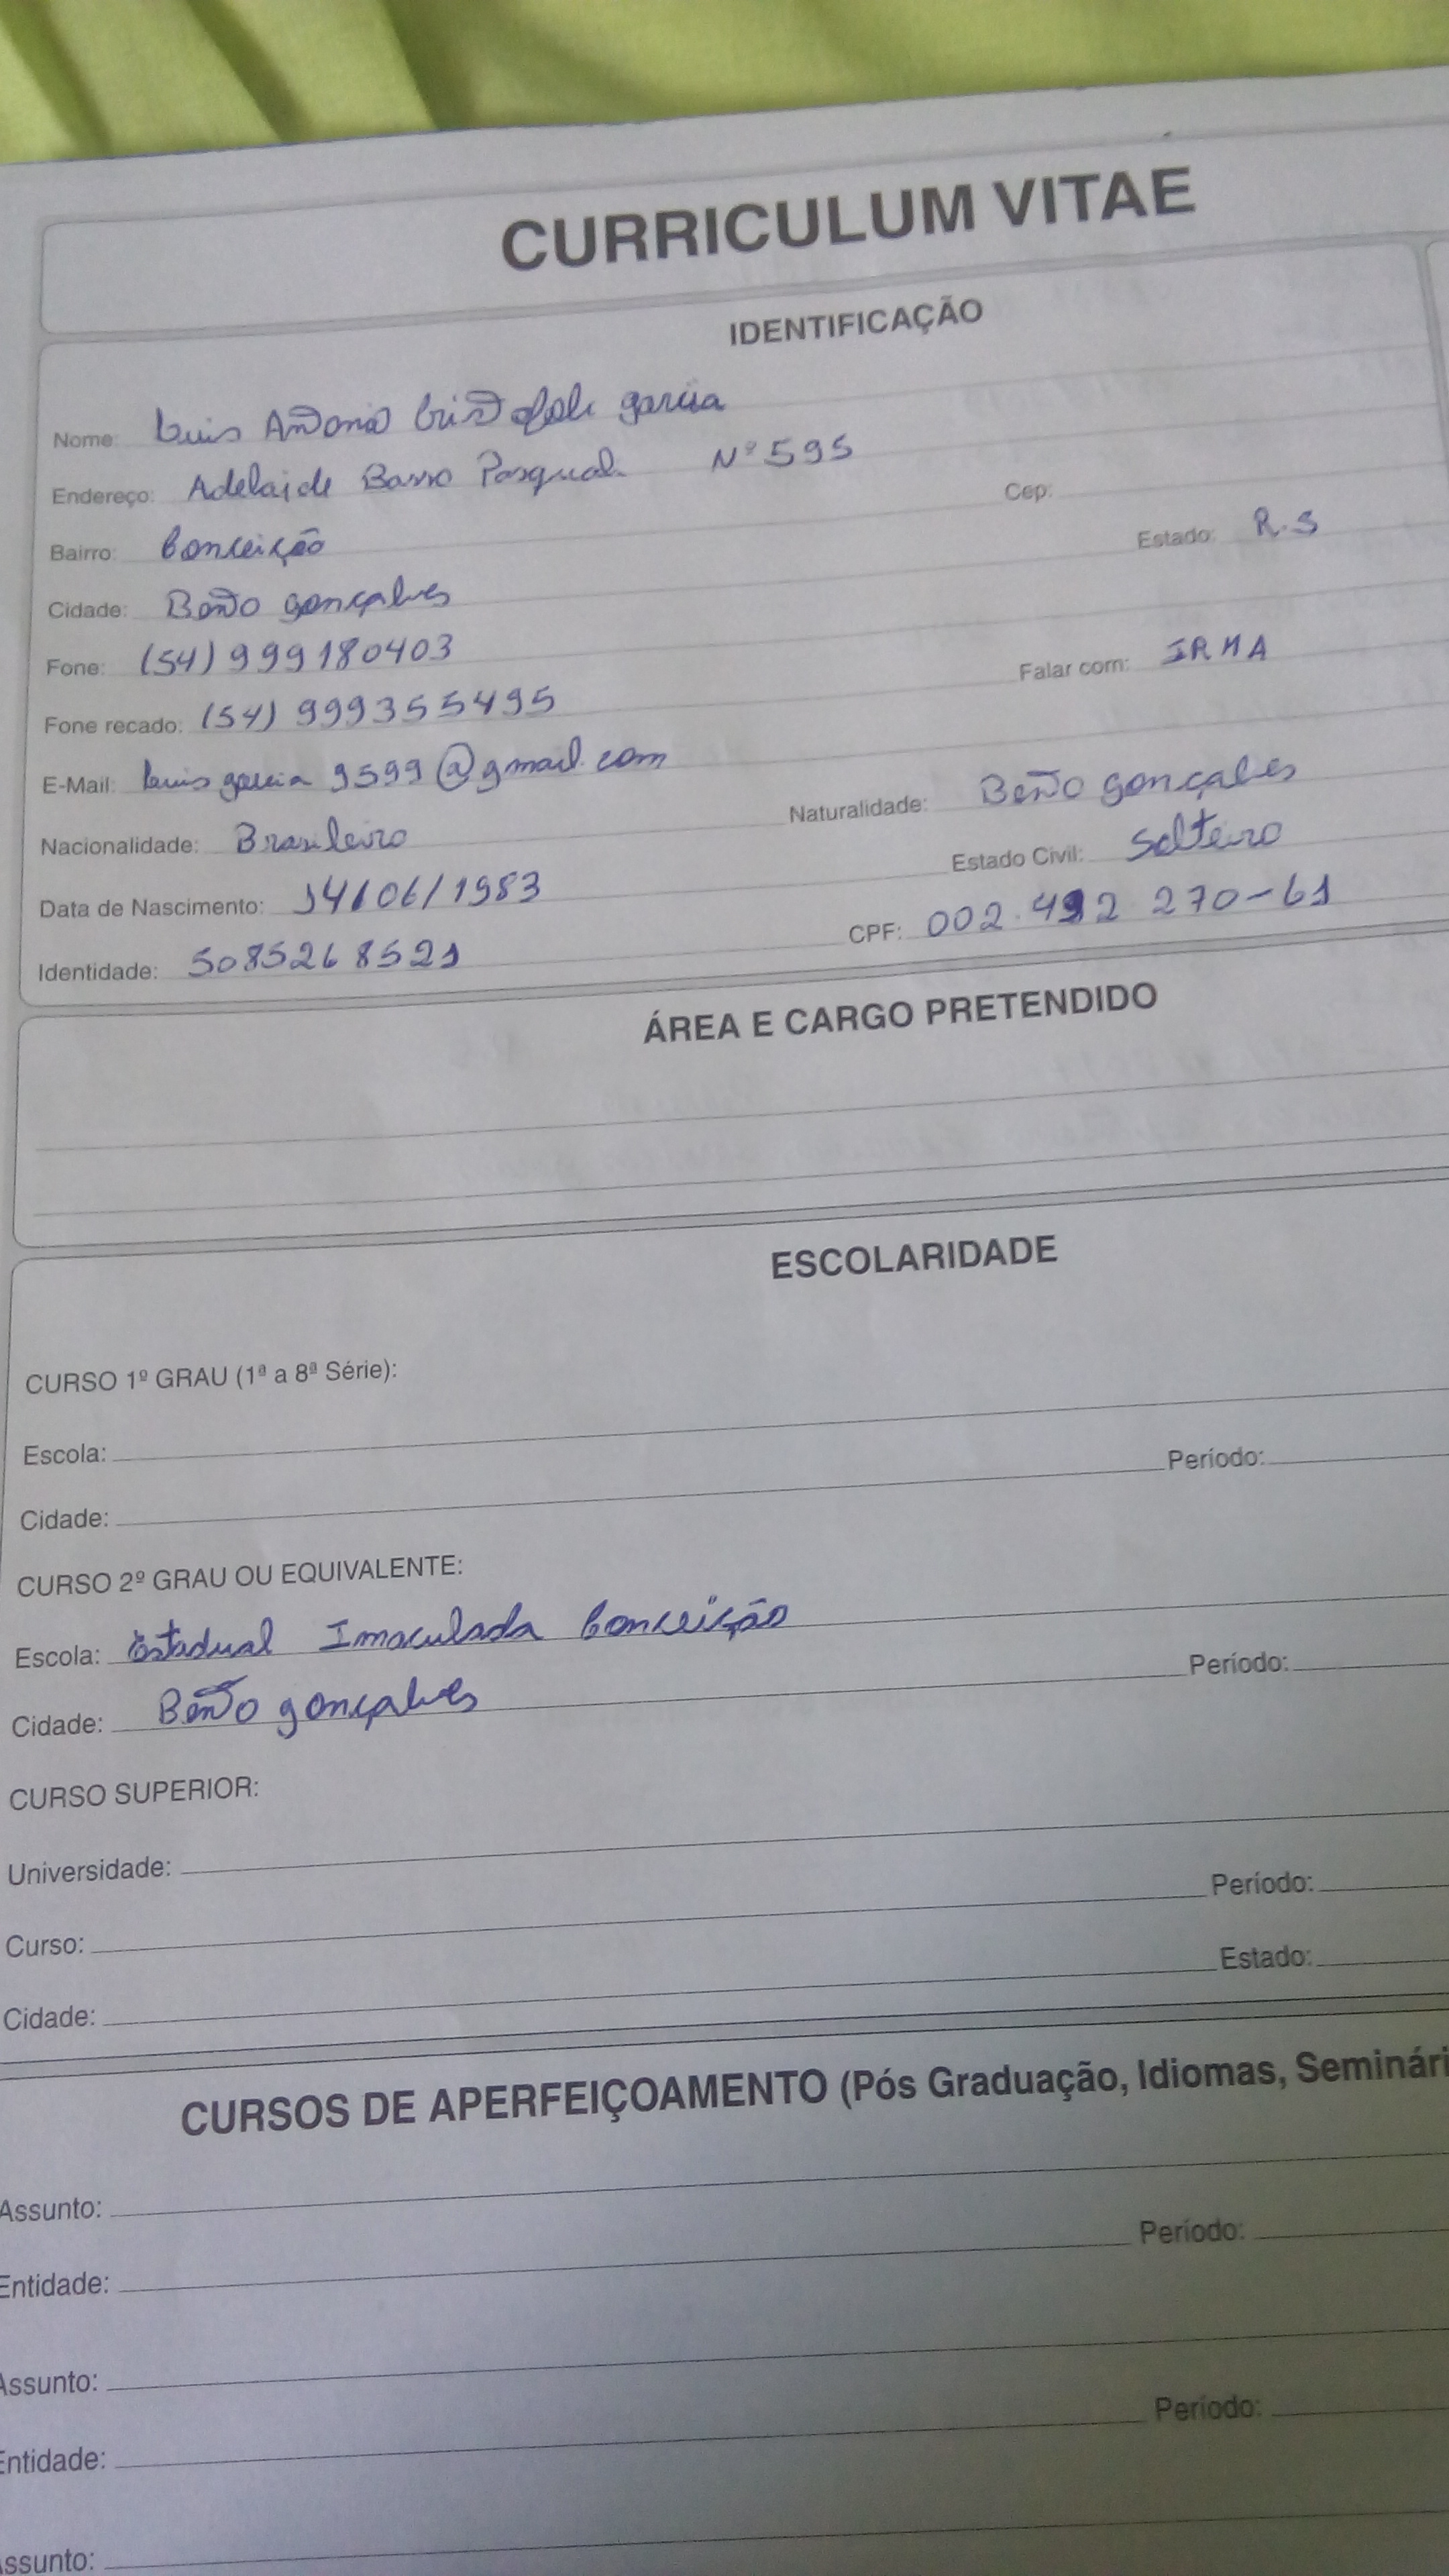 CURRICULUM VITAE
IDENTIFICAÇÃO
Nome: Luis Antonio Cristofoli garcia
Endereço: Adelaide Basso Pasquali Nº 595
Cep:
Bairro: Conceição
Estado: R.S
Cidade: Bento gonçalves
Fone: (54) 999180403
Falar com: IRMA
Fone recado: (54) 999355495
E-Mail: luis garcia 9599@gmail.com
Naturalidade: Bento gonçalves
Nacionalidade: Brasileiro
Estado Civil: Solteiro
Data de Nascimento: 14/06/1983
CPF: 002.492 270-61
Identidade: 5085268521
ÁREA E CARGO PRETENDIDO
ESCOLARIDADE
CURSO 1º GRAU (1ª a 8ª Série):
Escola:
Período:
Cidade:
CURSO 2º GRAU OU EQUIVALENTE:
Escola: Estadual Imaculada Conceição
Período:
Cidade: Bento gonçalves
CURSO SUPERIOR:
Universidade:
Período:
Curso:
Estado:
Cidade:
CURSOS DE APERFEIÇOAMENTO (Pós Graduação, Idiomas, Seminári
Assunto:
Período:
Entidade:
Assunto:
Período:
Entidade:
Assunto: